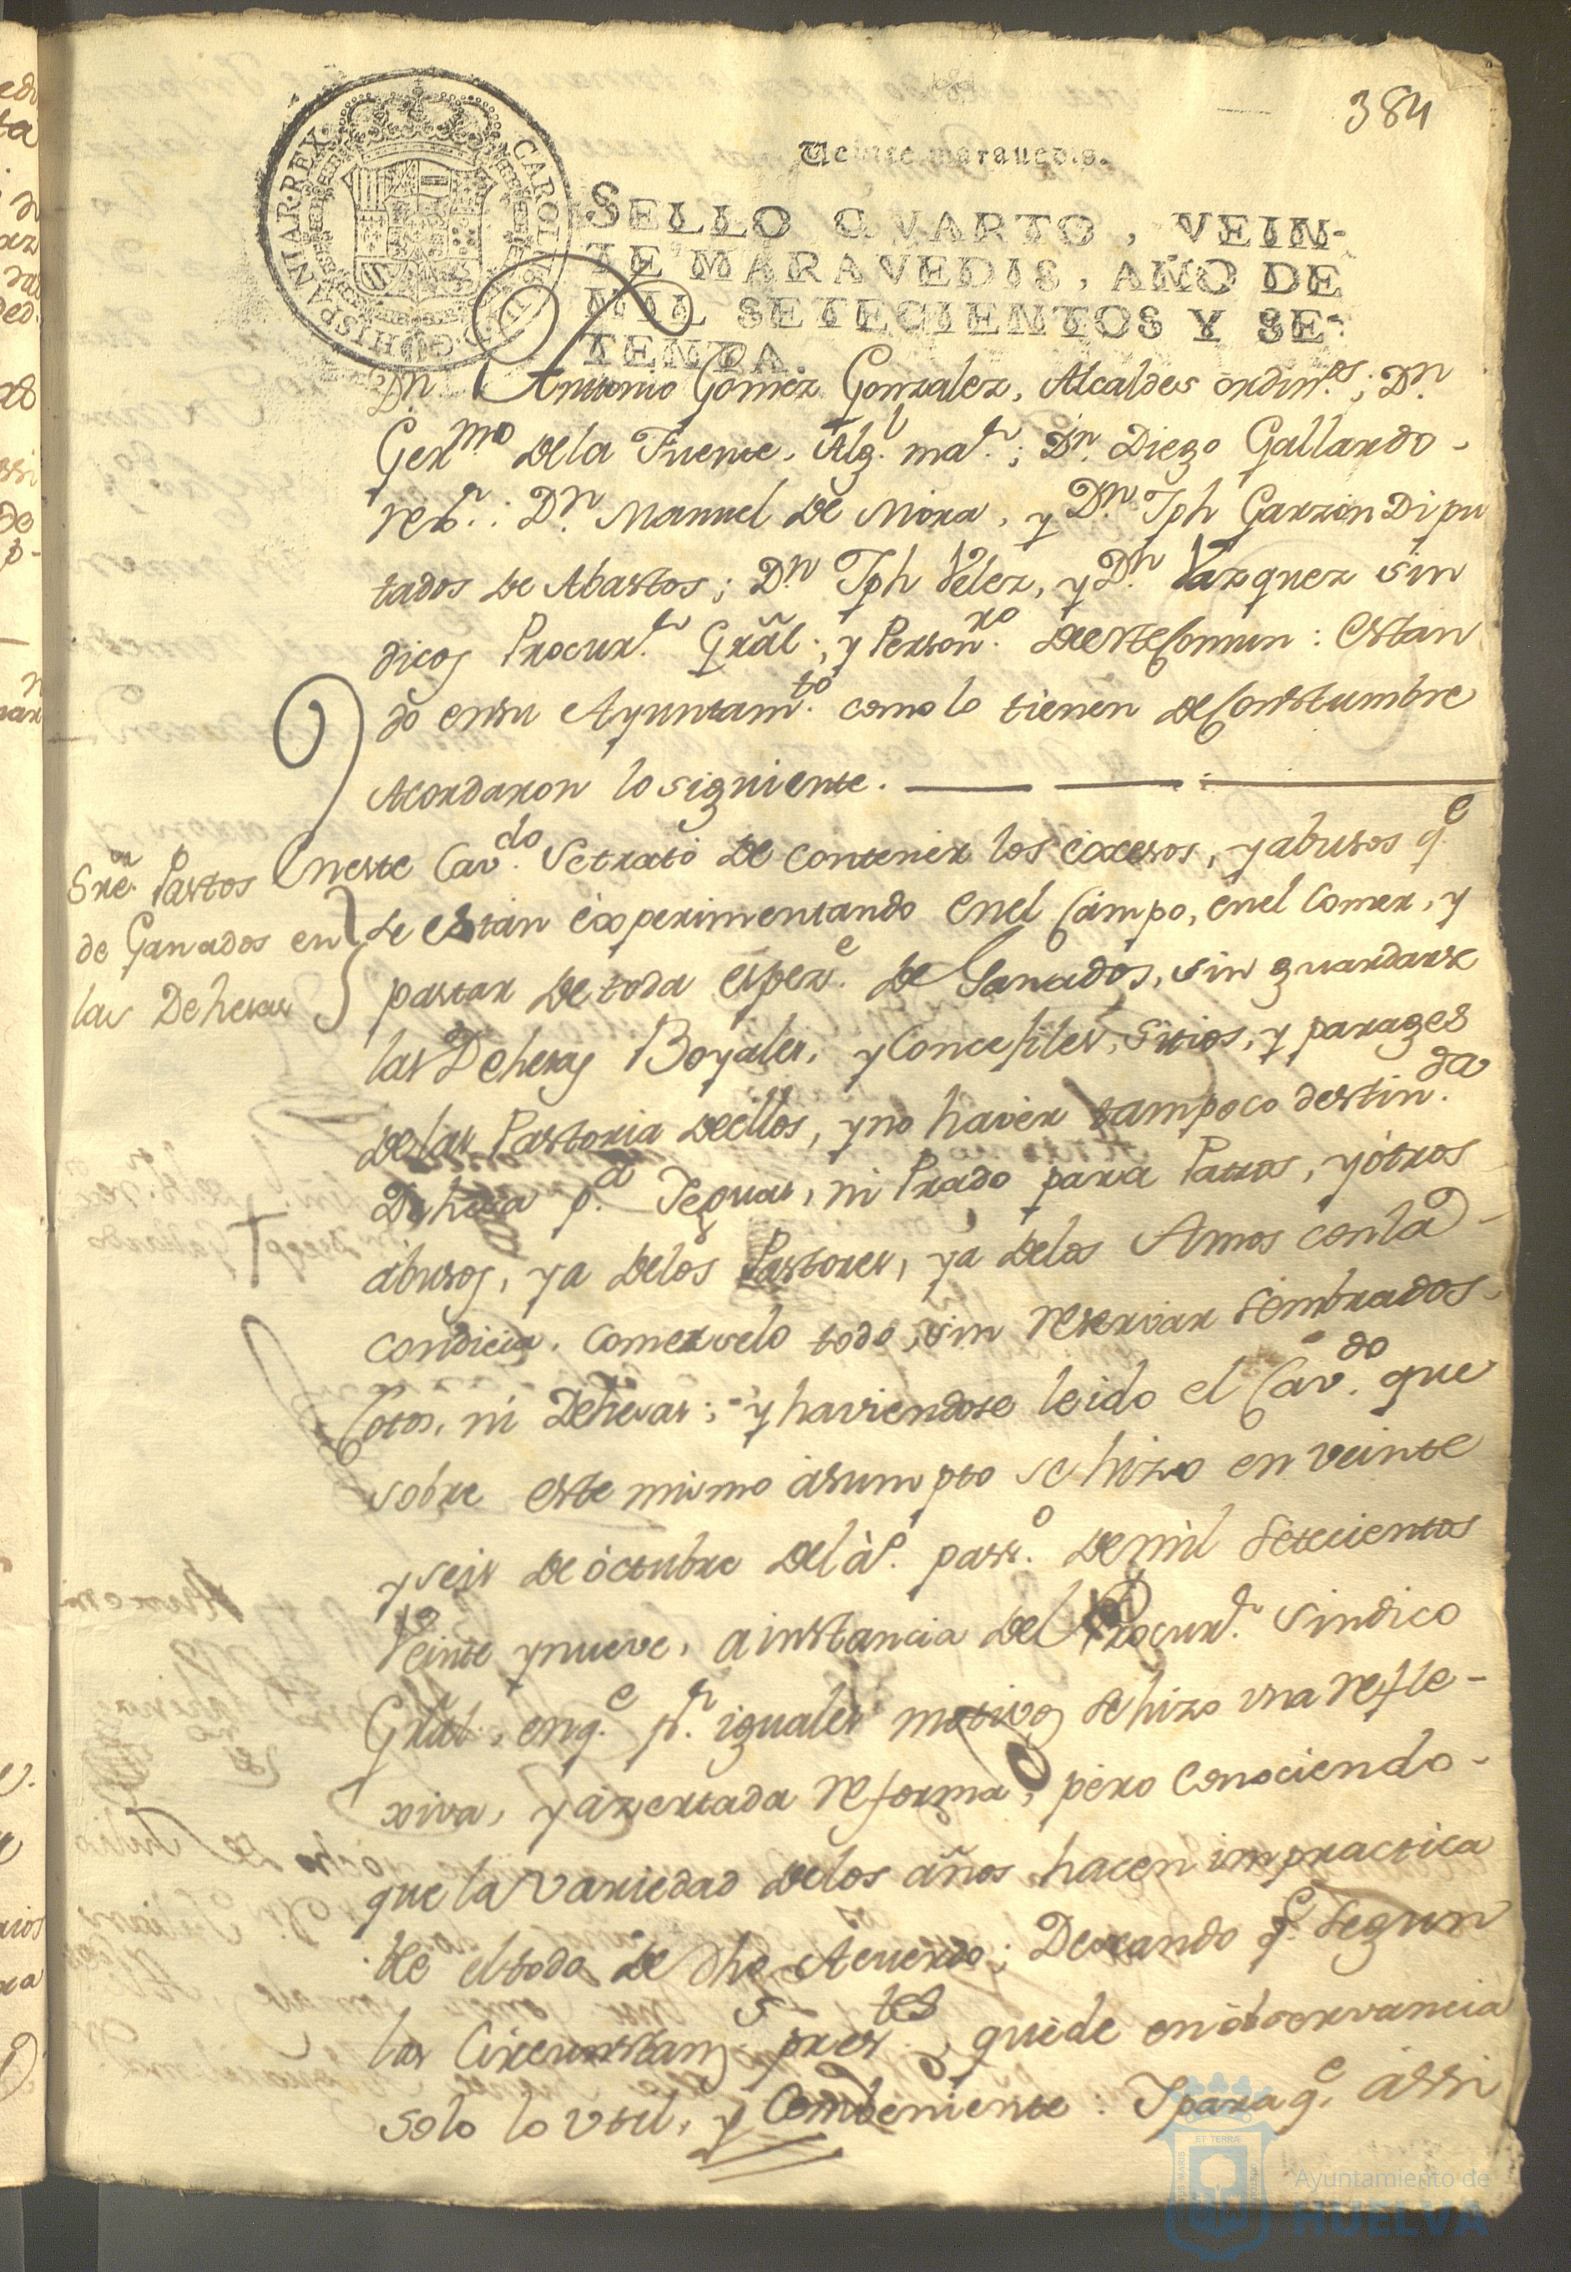 384
Veinte marauedis.
SELLO QVARTO, VEIN-
TE MARAVEDIS, AÑO DE
MIL SETECIENTOS Y SE-
TENTA.
CAROL III D G HISPANIAR REX
Dn. Antonio Gomez Gonzalez, Alcaldes ordin.os; Dn.
Germo de la Fuente, Alg.l ma.r; Dn. Diego Gallardo
rex.r: Dn. Manuel de Mora, y Dn. Jph Garzon Dipu
tados de Abastos; Dn. Jph Velez, y Dn. Vazquez sin
dicos Procur.r Grãl; y Person.ro de este Comun: estan
do en su Ayuntam.to como lo tienen de Constumbre
Acordaron lo siguiente.
Sre. Pastos
de Ganados en
las Dehesas
En este Cav.do se trató de contener los excesos, y abusos q.e
se estan experimentando en el Campo, en el Comer, y
pastar de toda espez.e de Ganados, sin guardarse
las Dehesas Boyales, y Concejiles, Sitios, y parages
de las Pastoria de ellos, y no haver tampoco destin.da
Dehesa p.a Yeguas, ni Prado para Patros, y otros
abusos, ya de los Pastores, ya de los Amos con la
condicia, comerselo todo, sin reservar sembrados
Cotos, ni Dehesas; y haviendose leido el Cav.do que
sobre este mismo asumpto se hizo en veinte
y seis de octubre del a.o pass.o de mil setecientos
Veinte y nueve, a instancia del Procur.r Sindico
Grãl, en q.e p.r iguales motivos se hizo una refle-
xiva, y azertada reforma, pero Conociendo
que la variedad de los años hacen impractica
ble el todo de dho Acuerdo; Deseando q.e segun
las Circunstanz.s pres.tes, quede en observancia
solo lo util, y Combeniente: Y para q.e assi
ET TERRÆ
Ayuntamiento de
HUELVA